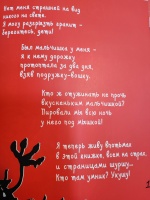 Нет меня страшней на вид
никого на свете.
Я могу разгрызть гранит –
Берегитесь, дети!
Был мальчишка у меня –
я к нему дорожку
протоптала за два дня,
взяв подружку-вошку.
Кто ж отужинать не прочь
вкусненьким мальчишкой?
Пировали мы всю ночь
у него под мышкой!
Я теперь живу впотьмах
в этой книжке, всем на страх,
и страницами шуршу...
Кто там умник? Укушу!